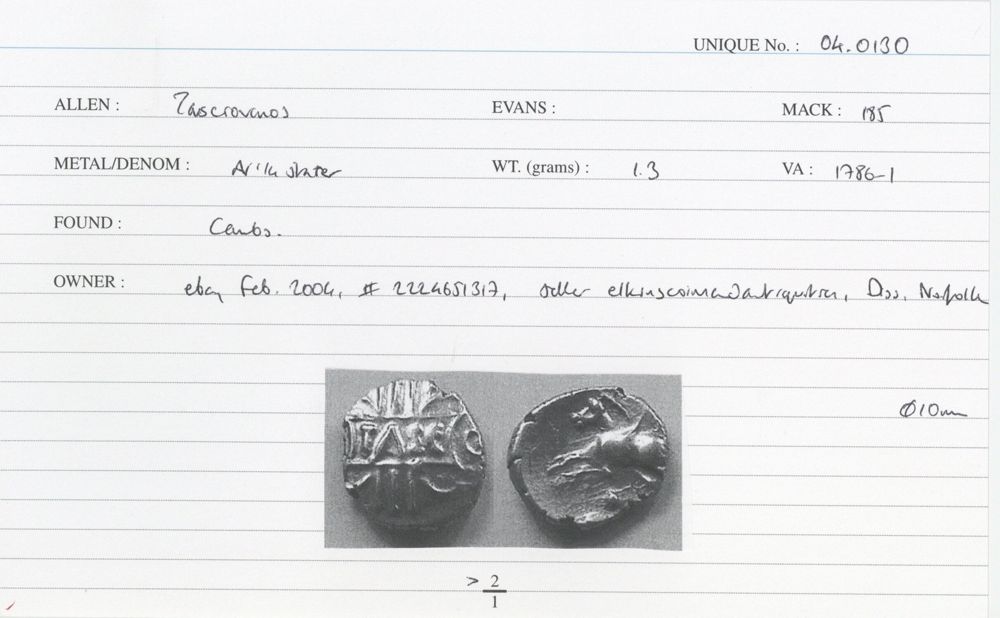 UNIQUE No. : 04.0130
ALLEN : Tasciovanos EVANS : MACK : 185
METAL/DENOM : AV 1/4 stater WT. (grams) : 1.3 VA : 1786-1
FOUND : Cambs.
OWNER : ebay Feb. 2004, # 2224651317, seller elkinscoinsandantiquities, Diss, Norfolk
Ø10mm
TASC
> 2
1